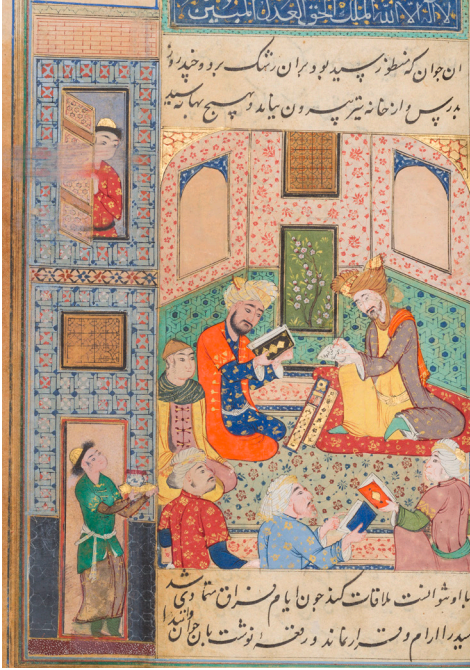 لا اله الا الله الملک الحق العدل المبین
ان جوان که منظور سید بود بران رشک برد و چند روز
بدرس و از خانه نیز بیرون نیامد و بهیچ بهانه سید
با او نتوانست ملاقات کند چون ایام فراق متمادی شد
سید را ارام و قرار نماند و رقعهٔ نوشت بان جوان